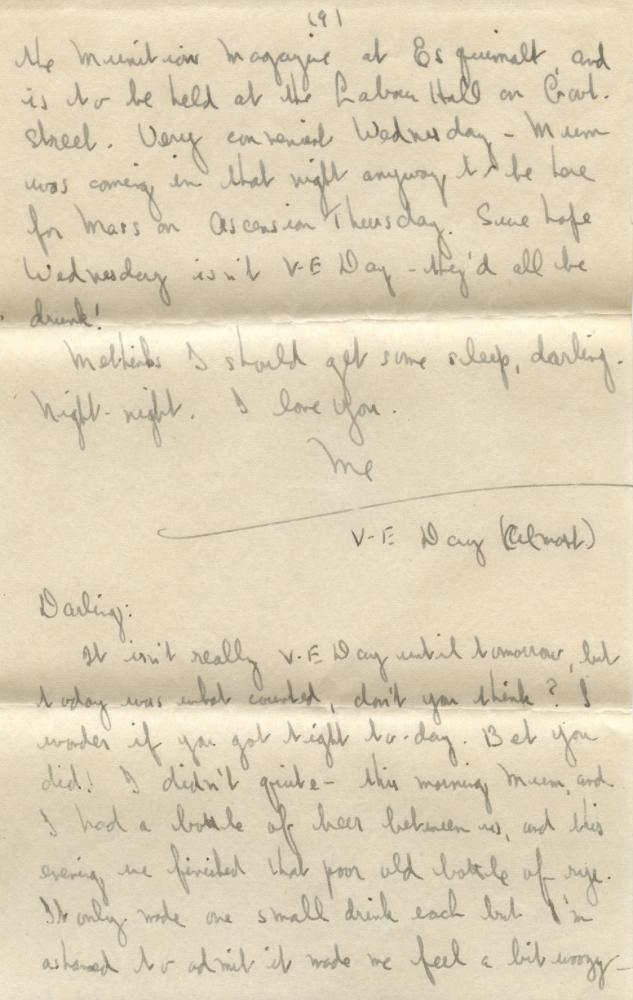 (9)
the Munitions Magazine at Esquimalt, and
is to be held at the Labour Hall on Govt.
Street. Very convenient Wednesday - Mum
was coming in that night anyway to be here
for Mass on Ascension Thursday. Sure hope
Wednesday isn't V-E Day - they'd all be
drunk!
Methinks I should get some sleep, darling.
Night-night. I love you.
Me
V-E Day (almost)
Darling:
It isn't really V-E Day until tomorrow, but
today was what counted, don't you think? I
wonder if you got tight to-day. Bet you
did! I didn't quite - this morning Mum and
I had a bottle of beer between us, and this
evening we finished that poor old bottle of rye.
It only made one small drink each but I'm
ashamed to admit it made me feel a bit woozy -